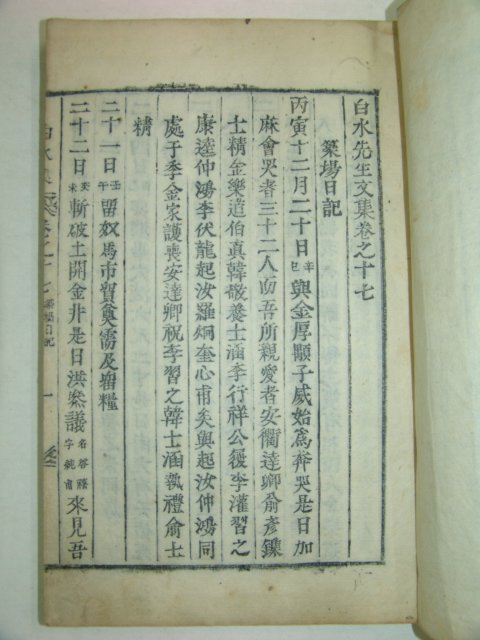 白水先生文集卷之十七
築場日記
丙寅十二月二十日辛巳與金厚顯子威始爲奔哭是日加
麻會哭者三十二人而吾所親愛者安衢達卿俞彦鏶
士精金樂道伯眞韓敬養士涵李行祥公履李灌習之
康逵仲鴻李伏龍起汝羅烱奎心甫矣與起汝仲鴻同
處于季金家護喪安達卿祝李習之韓士涵執禮俞士
精
二十一日壬午留奴馬市賀奠需及留糧
二十二日癸未斬破土開金井是日洪察議名啓字純甫來見吾
白水
卷之十七 築場日記 一